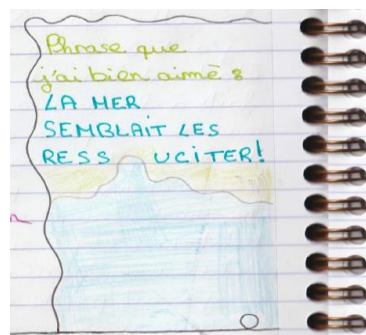 Phrase que
j'ai bien aimé :
LA MER
SEMBLAIT LES
RESS UCITER!